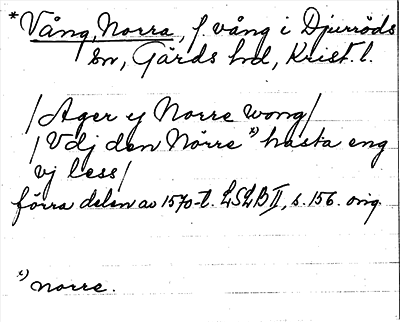 *Vång, Norra, f. vång i Djurröds
sn, Gärds hd, Krist. l.
/Ager y Norre wong/
/Vdj den Nörre *) hasta eng
vj less/
förra delen av 1570-t. LSLB II, s. 156. orig.
*) norre.